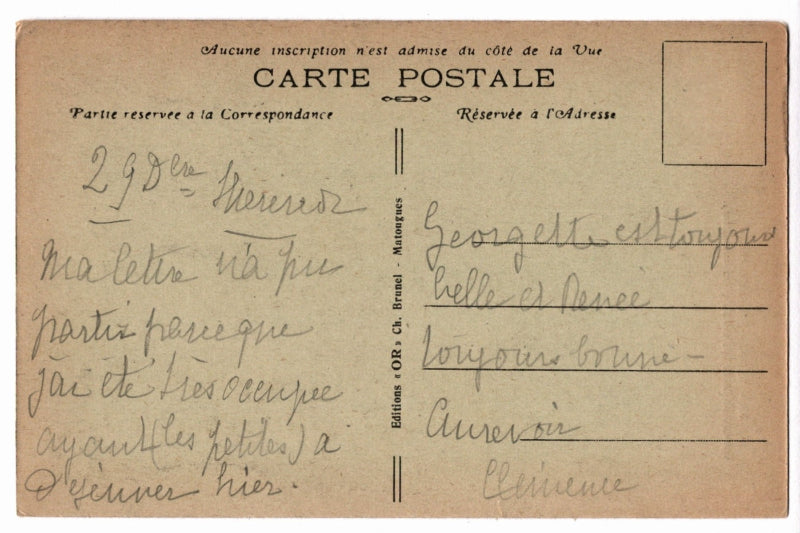 Aucune inscription n'est admise du côté de la Vue
CARTE POSTALE
Partie reservée à la Correspondance
Réservée à l'Adresse
29 Dbre
Ma lettre n'a pu
partir parceque
j'ai été très occupée
ayant (les petites) a
Dejeuner hier.
Editions « OR » Ch. Brunel - Matougues
Georgette est toujours
belle et Renée
toujours bonne -
Aurevoir
Clémence